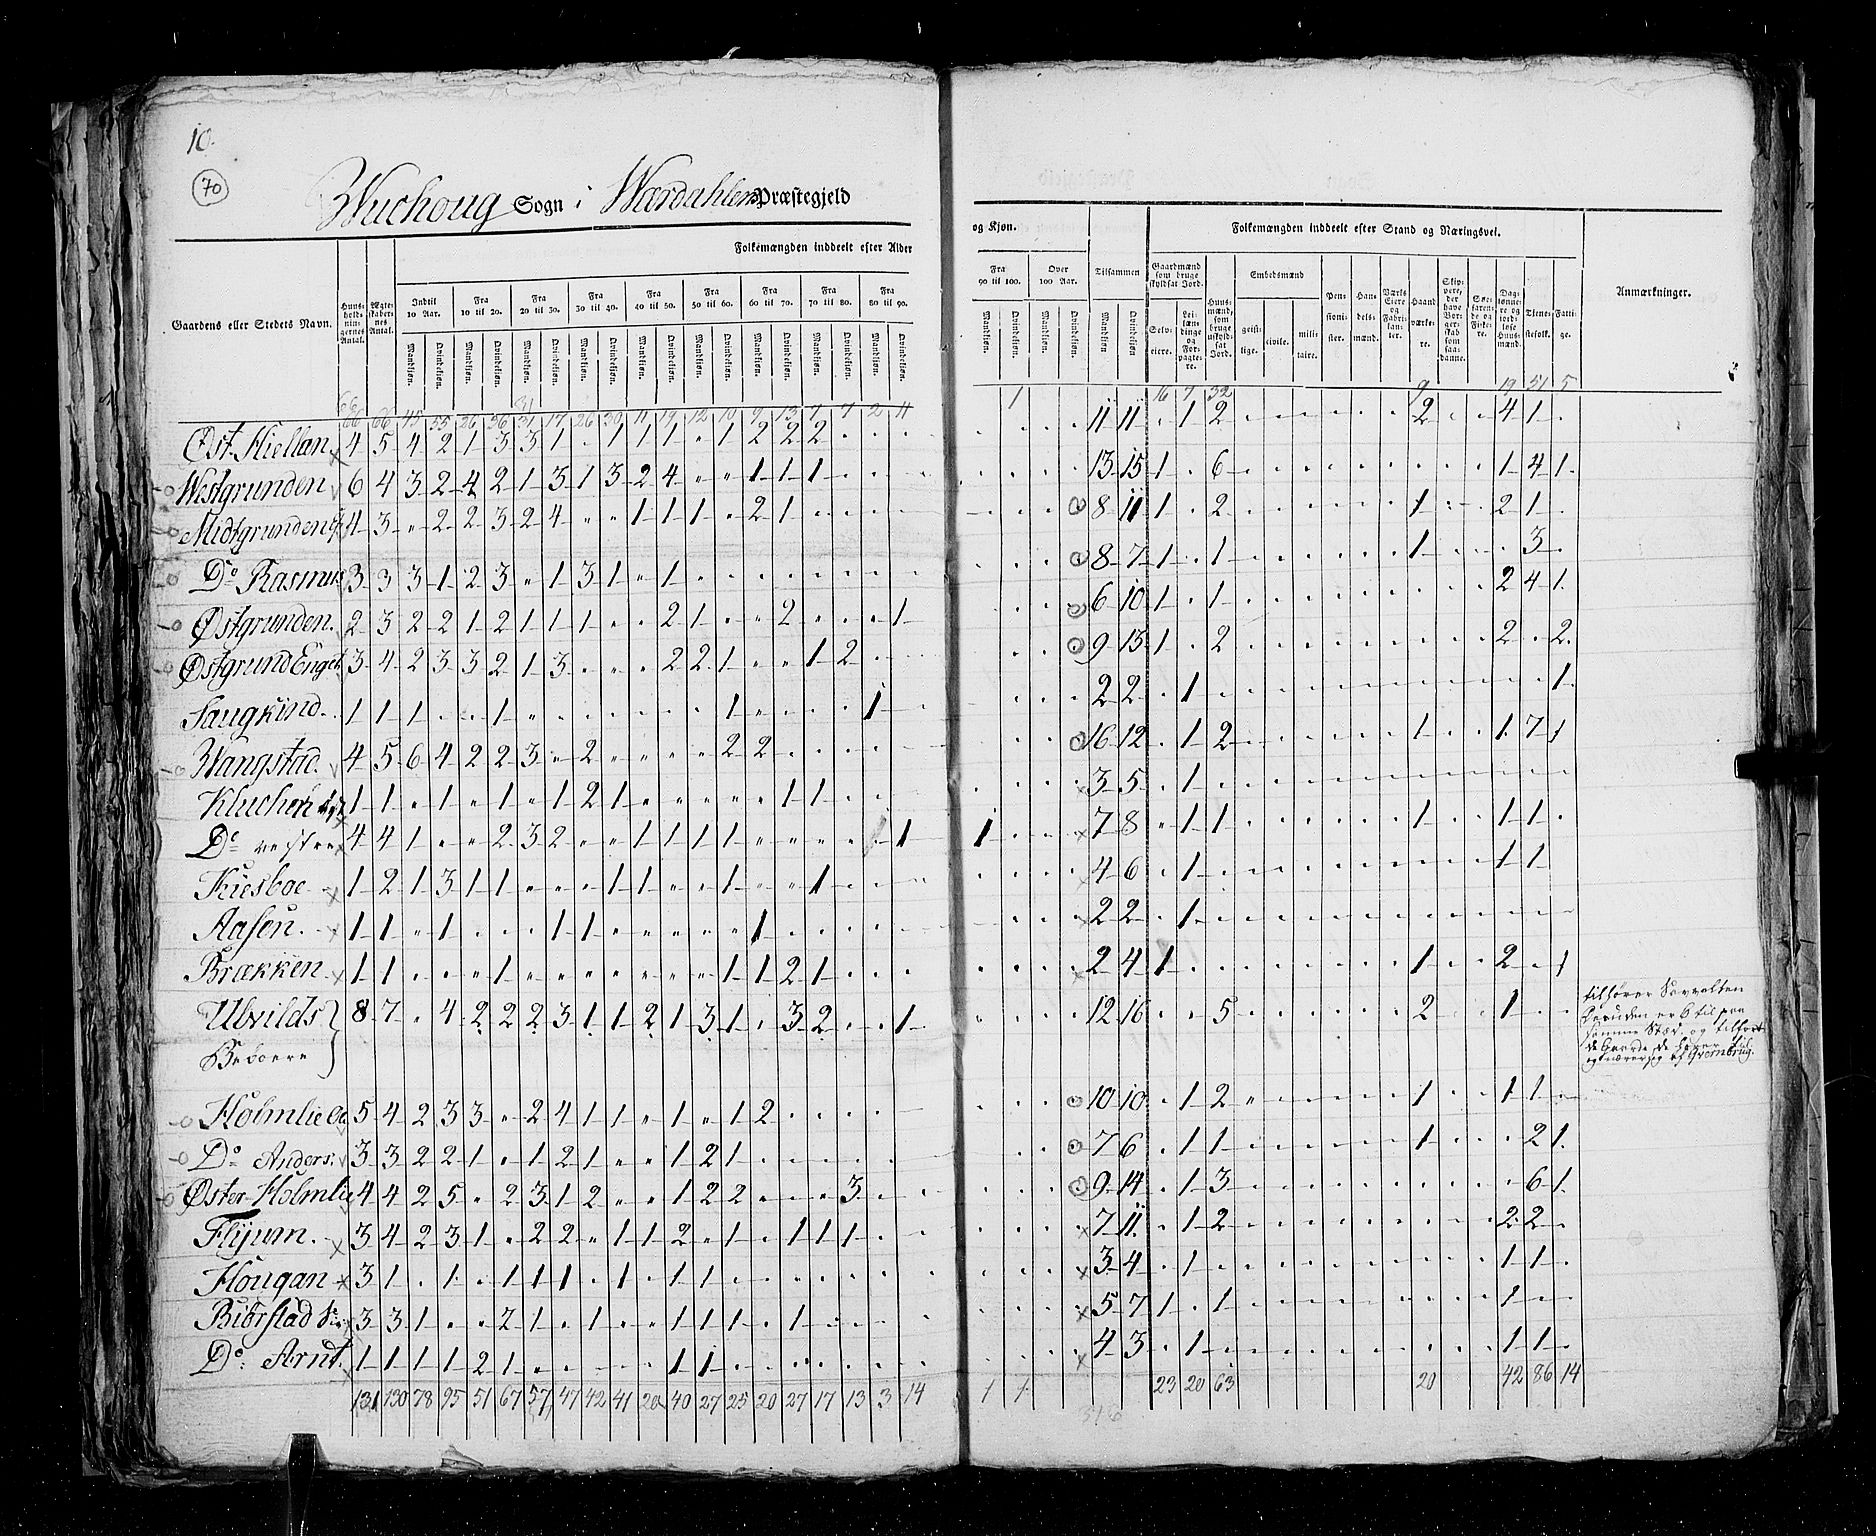 10.
70
Wuchoug Sogn i Wærdahlens Præstegjeld
Gaardens eller Stedets Navn.
Huus-holdningernes Antal.
Ægteskabernes Antal.
Folkemængden inddeelt efter Alder og Kjøn.
Indtil 10 Aar. Fra 10 til 20. Fra 20 til 30. Fra 30 til 40. Fra 40 til 50. Fra 50 til 60. Fra 60 til 70. Fra 70 til 80. Fra 80 til 90. Fra 90 til 100. Over 100 Aar. Tilsammen
Mandkjøn. Qvindekjøn.
Folkemængden inddeelt efter Stand og Næringsvei.
Gaardmænd som bruge skyldsat Jord.
Selveiere. Leilændinge og Forpagtere.
Huusmænd, som bruge uskyldsat Jord.
Embedsmænd
geistlige. civile. militaire.
Pensionister. Handelsmænd. Værks Eiere og Fabrikanter. Haandværkere. Skippere, der have Borgerskab som saadanne. Søefarende og Fiskere. Daglønnere og jordløse Huusmænd. Tjenestefolk. Fattige.
Anmærkninger.
66 66 45 55 26 36 31 17 26 30 11 19 12 10 9 13 7 7 2 11 1 16 7 32 9 19 51 5
Øst Hiellan 4 5 4 2 1 3 3 1 . 1 1 1 . 1 2 2 2 11 11 . 1 2 2 4 1
Westgrunden 6 4 3 2 4 2 1 3 1 3 2 4 . . 1 1 1 13 15 1 . 6 1 4 1
Midtgrunden 4 3 . 2 2 3 2 4 . . 1 1 1 . 2 1 8 11 1 . 2 1 2 1
Do Rasmus 3 3 3 1 2 3 . 1 3 1 . 1 8 7 1 . 1 1 . 3
Østgrunden. 2 3 2 2 1 2 1 1 1 . . 2 1 . . 2 . . . 1 6 10 1 . 1 2 4 1
Østgrund Enget 3 4 2 3 3 2 1 3 . . . 2 2 1 . . 1 2 9 13 1 . 2 2 . 2
Saugkind. 1 1 1 . . 1 1 1 2 2 . 1 1
Wangstad. 4 5 6 4 2 2 3 . 2 2 2 16 12 . 1 2 1 1 7 1
1 1 . 1 . 1 . 1 2 1 1 1 3 5 . 1
Do vestre 4 4 1 . . 2 3 2 . . 1 1 1 1 1 1 1 7 8 . 1 1 1 1 1
Kiesboe 1 2 1 3 1 1 . . . 1 1 . . 1 . . 1 4 6 . 1 1 1
Aasen. 1 1 . 1 . . . 1 1 1 2 2 . 1
Brækken 1 1 . . . 1 1 1 2 1 2 4 1 1 2 . 1
Ulvilds 8 7 . 4 2 2 2 3 1 1 2 1 3 1 . 3 2 . . 1 12 16 . . 5 2 1
Beboere
Holmlie 5 4 2 3 3 . 2 4 1 1 . 1 . 1 2 10 10 . 1 2 1 1 1
Do Anders. 3 3 2 2 1 . 1 2 1 . . 1 2 1 7 6 . 1 1 1 . 2 1
Øster Holmlie 4 4 2 5 . 2 3 1 2 . . 1 2 2 . . . 3 9 14 . 1 3 . 6 1
Flyum. 3 4 2 3 1 . 2 2 . 1 1 2 . 1 . 1 1 1 7 11 . 1 2 2 2
Hougan 3 1 . 1 . 1 1 1 . 1 . 1 1 3 4 . 1 1 1
Biørstad 3 3 1 . . 2 1 . 1 . . 1 1 1 . 1 5 7 1 . 1 1
Do. Arnt. 1 1 1 1 2 1 1 1 4 3 . 1 1 1
131 130 78 95 51 67 57 47 42 41 20 40 27 25 20 27 17 13 3 14 1 1 23 20 63 20 42 86 14
316